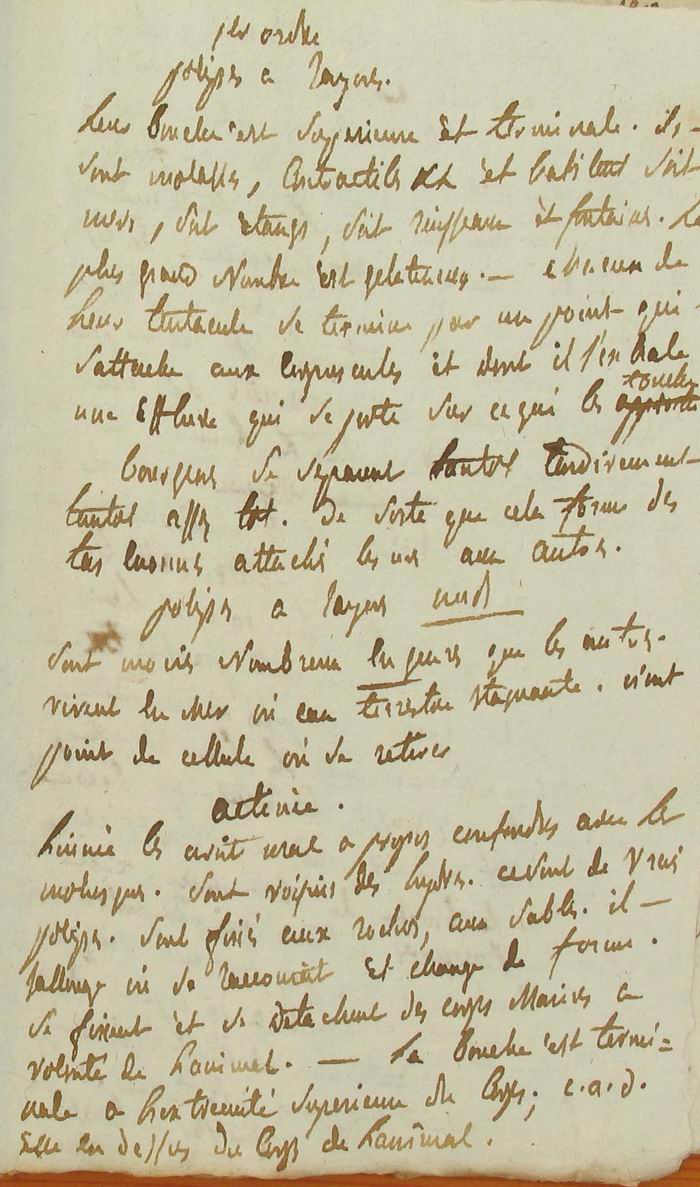 1er ordre
polipes a rayons.
Leur bouche est superieure et terminale. ils
sont molasses, contractiles et habitent soit
mers, soit etangs, soit ruisseaux et fontaines. Le
plus grand nombre est gelatineux. — chacun de
Leur tentacule se termine par un point qui
s'attache aux corpuscules et dont il s'exhale
une effluve qui se porte sur ce qui les touche
bourgeons se separent tantot tardivement
tantot assez tot. de sorte que cela forme des
tas enormes attachés les uns aux autres.
polipes a rayons nuds
sont moins nombreux en genres que les autres.
vivent en mer où eau terrestre stagnante. n'ont
point de cellule où se retirer
actinie.
Linnée les avoit mal a propos confondres avec les
molusques. sont voisines des hydres. ce sont de vrais
polipes. sont fixés aux rochers, aux sables. il
s'allonge où se raccourcit et change de forme.
se fixent et se detachent des corps marins a
volonté de L'animal. — La bouche est termi=
nale a L'extremité superieure du corps; c.a.d.
en dessus du corps de L'animal.